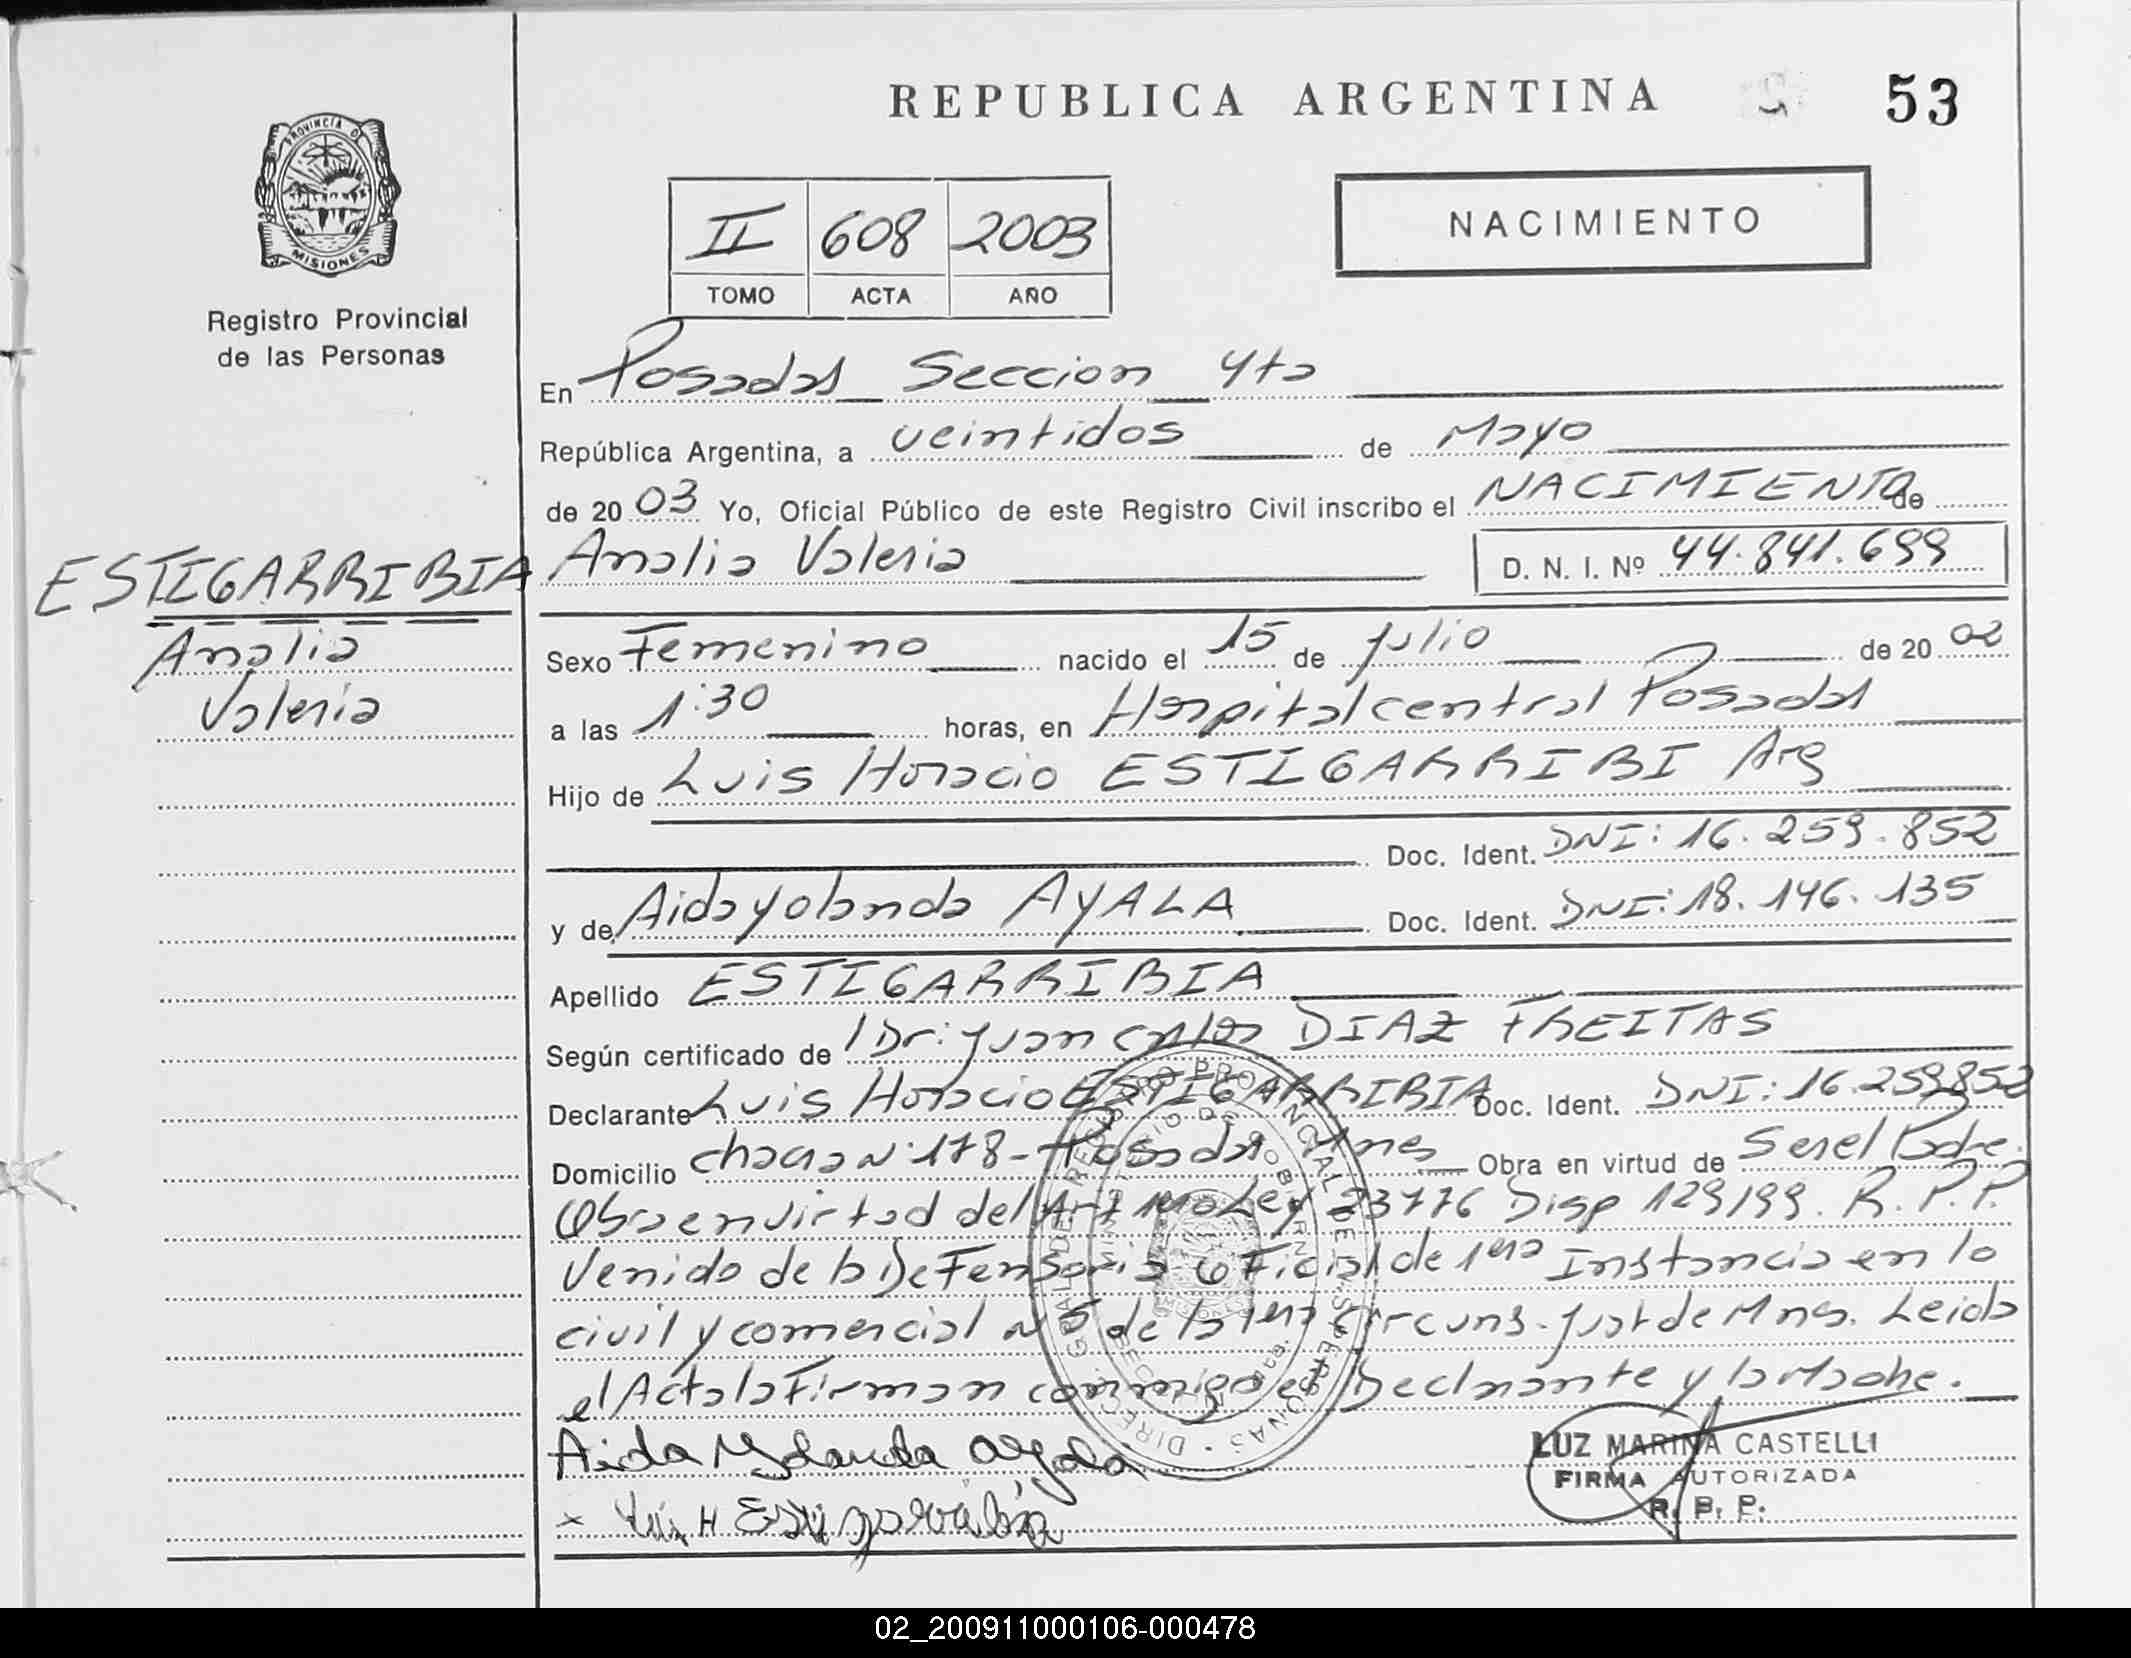 REPUBLICA ARGENTINA 53
PROVINCIA D
MISIONES
Registro Provincial
de las Personas
II 608 2003
TOMO ACTA AÑO
NACIMIENTO
En Posadas Seccion 4ta
República Argentina, a veintidos de Mayo
de 2003 Yo, Oficial Público de este Registro Civil inscribo el NACIMIENTO de
ESTIGARRIBIA
Analia Valeria D. N. I. Nº 44.841.699
Analia
Valeria
Sexo Femenino nacido el 15 de Julio de 2002
a las 1:30 horas, en Hospital central Posadas
Hijo de Luis Horacio ESTIGARRIBI Arg
Doc. Ident. DNI: 16.259.852
y de Aida Yolanda AYALA Doc. Ident. DNI: 18.146.135
Apellido ESTIGARRIBIA
Según certificado de Dr: Juan Carlos DIAZ FREITAS
Declarante Luis Horacio ESTIGARRIBIA Doc. Ident. DNI: 16.259852
Domicilio chacra Nº 178- Posadas Mnes Obra en virtud de Ser el Padre.
Obra en virtud del Art 1 Ley 23776 Disp 129/99. R.P.P.
Venido de la Defensoria Oficial de 1era Instancia en lo
civil y comercial Nº 5 de la 1era Circuns. Just de Mnes. Leida
el Acta la Firman conmigo el Declarante y la Madre.
DIRECC. GRAL. DE REGISTRO PROVINCIAL DE LAS PERSONAS
MINISTERIO DE GOBIERNO
Aida Yolanda Ayala
x Luis H Estigarribia
LUZ MARINA CASTELLI
FIRMA AUTORIZADA
R. P. P.
02_200911000106-000478